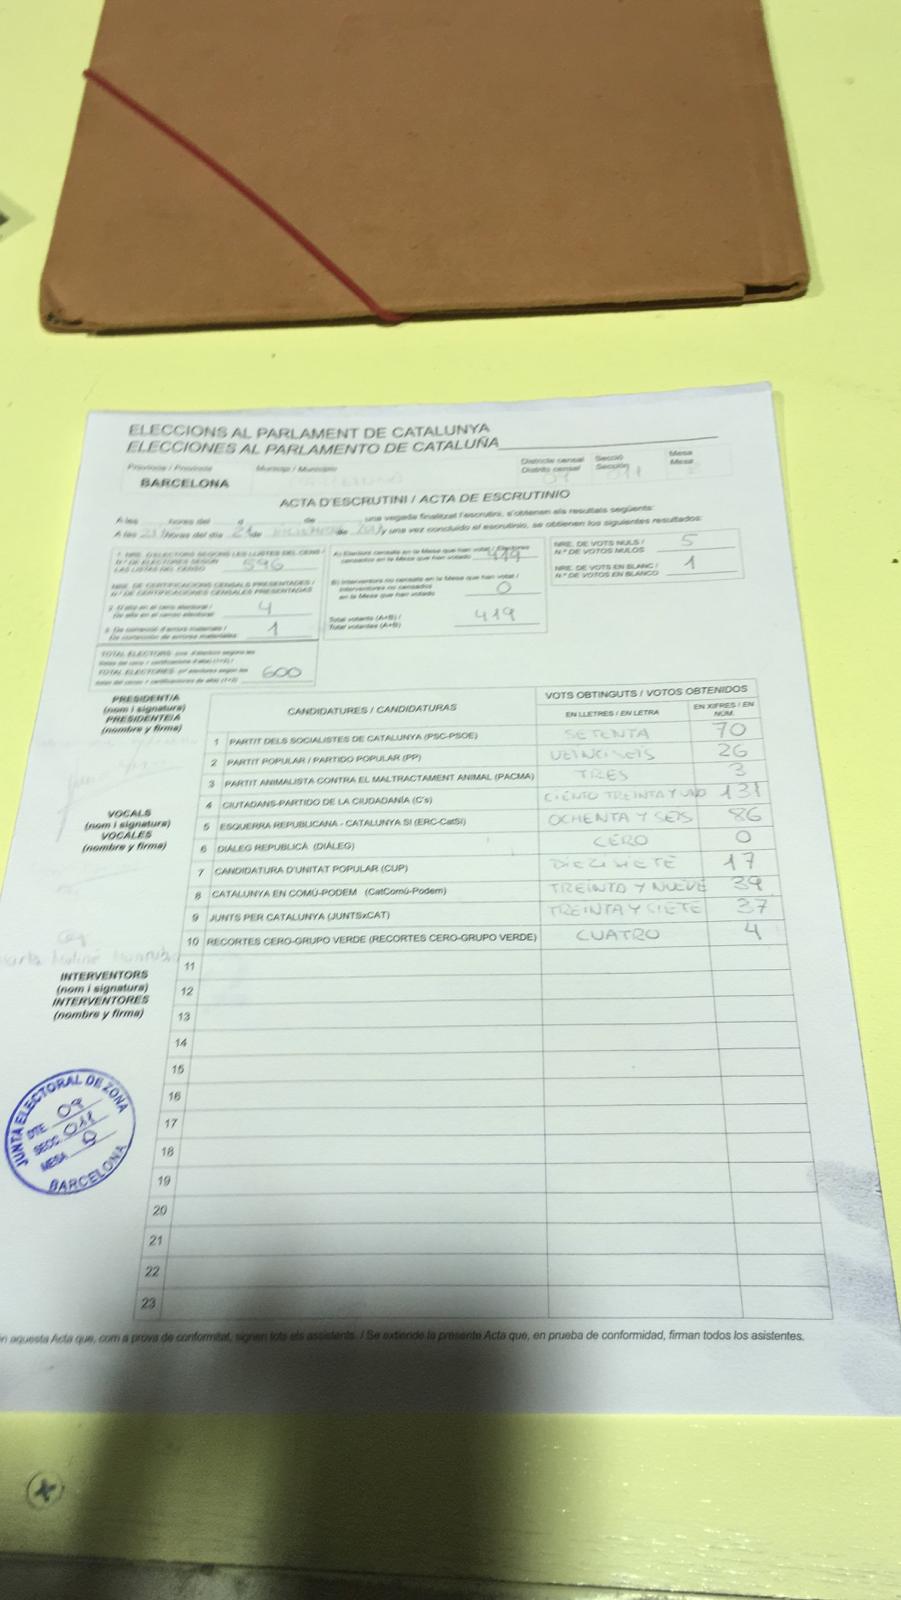 ELECCIONS AL PARLAMENT DE CATALUNYA
ELECCIONES AL PARLAMENTO DE CATALUÑA
Província / Provincia Municipi / Municipio Districte censal Secció Mesa
Distrito censal Sección Mesa
BARCELONA 09 011
ACTA D'ESCRUTINI / ACTA DE ESCRUTINIO
A les hores del d de una vegada finalitzat l'escrutini, s'obtenen els resultats següents:
A las horas del día 21 de de y una vez concluido el escrutinio, se obtienen los siguientes resultados:
1. NRE. D'ELECTORS SEGONS LES LLISTES DEL CENS /
N.º DE ELECTORES SEGÚN
LAS LISTAS DEL CENSO 596
NRE. DE CERTIFICACIONS CENSALS PRESENTADES /
N.º DE CERTIFICACIONES CENSALES PRESENTADAS
2. D'alta en el cens electoral /
De alta en el censo electoral 4
3. De correcció d'errors materials /
De corrección de errores materiales 1
TOTAL ELECTORES 600
A) Electors censats en la Mesa que han votat / Electores
censados en la Mesa que han votado 419
B) Interventors no censats en la Mesa que han votat /
Interventores no censados
en la Mesa que han votado 0
Total votants (A+B) /
Total votantes (A+B) 419
NRE. DE VOTS NULS /
N.º DE VOTOS NULOS 5
NRE. DE VOTS EN BLANC /
N.º DE VOTOS EN BLANCO 1
PRESIDENT/A
(nom i signatura)
PRESIDENTE/A
(nombre y firma)
VOCALS
(nom i signatura)
VOCALES
(nombre y firma)
INTERVENTORS
(nom i signatura)
INTERVENTORES
(nombre y firma)
CANDIDATURES / CANDIDATURAS
VOTS OBTINGUTS / VOTOS OBTENIDOS
EN LLETRES / EN LETRA EN XIFRES / EN NÚM.
1 PARTIT DELS SOCIALISTES DE CATALUNYA (PSC-PSOE) SETENTA 70
2 PARTIT POPULAR / PARTIDO POPULAR (PP) VEINCISEIS 26
3 PARTIT ANIMALISTA CONTRA EL MALTRACTAMENT ANIMAL (PACMA) TRES 3
4 CIUTADANS-PARTIDO DE LA CIUDADANÍA (C's) CIENTO TREINTA Y UNO 131
5 ESQUERRA REPUBLICANA - CATALUNYA SÍ (ERC-CatSí) OCHENTA Y SEIS 86
6 DIÀLEG REPUBLICÀ (DIÀLEG) CERO 0
7 CANDIDATURA D'UNITAT POPULAR (CUP) DIECISIETE 17
8 CATALUNYA EN COMÚ-PODEM (CatComú-Podem) TREINTA Y NUEVE 39
9 JUNTS PER CATALUNYA (JUNTSxCAT) TREINTA Y SIETE 37
10 RECORTES CERO-GRUPO VERDE (RECORTES CERO-GRUPO VERDE) CUATRO 4
11
12
13
14
15
16
17
18
19
20
21
22
23
JUNTA ELECTORAL DE ZONA
DTE. 09
SECC. 011
MESA
BARCELONA
n aquesta Acta que, com a prova de conformitat, signen tots els assistents. / Se extiende la presente Acta que, en prueba de conformidad, firman todos los asistentes.